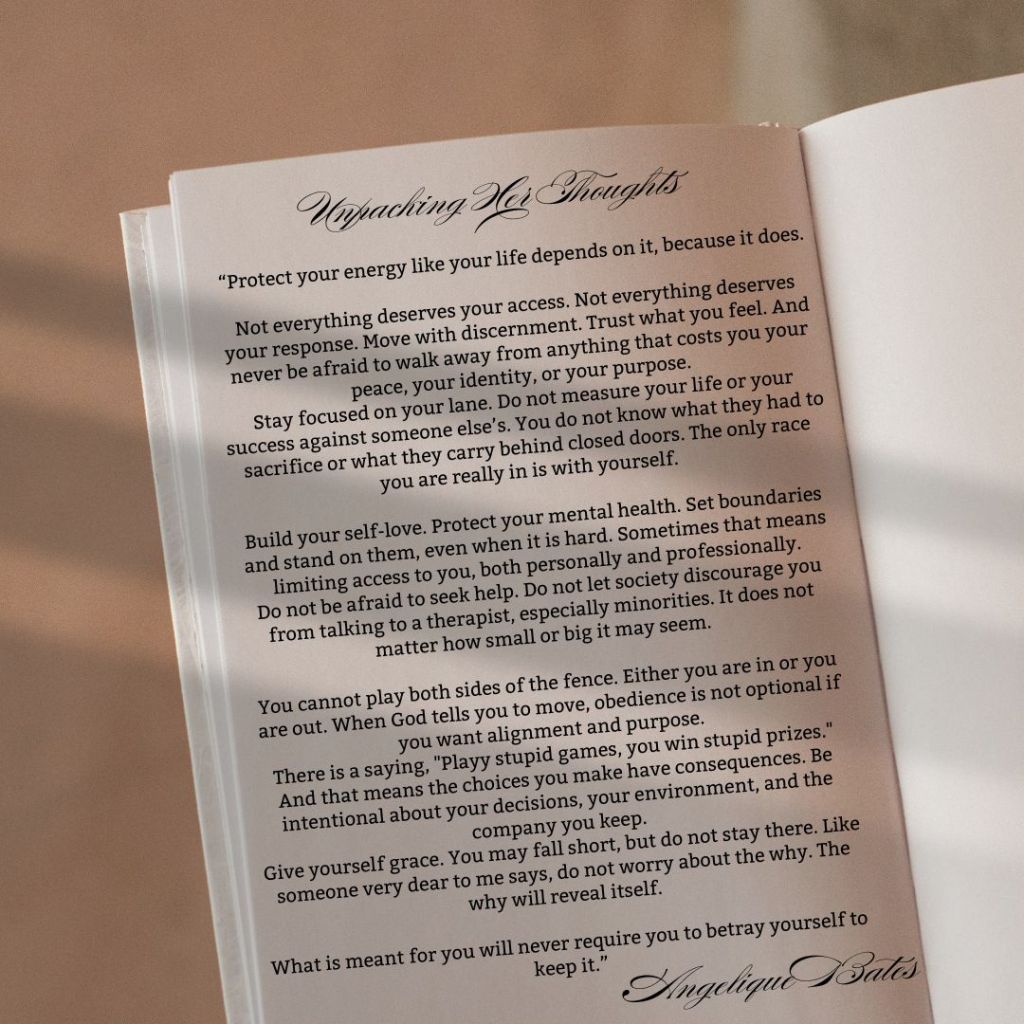 Unpacking Her Thoughts
“Protect your energy like your life depends on it, because it does.
Not everything deserves your access. Not everything deserves
your response. Move with discernment. Trust what you feel. And
never be afraid to walk away from anything that costs you your
peace, your identity, or your purpose.
Stay focused on your lane. Do not measure your life or your
success against someone else’s. You do not know what they had to
sacrifice or what they carry behind closed doors. The only race
you are really in is with yourself.
Build your self-love. Protect your mental health. Set boundaries
and stand on them, even when it is hard. Sometimes that means
limiting access to you, both personally and professionally.
Do not be afraid to seek help. Do not let society discourage you
from talking to a therapist, especially minorities. It does not
matter how small or big it may seem.
You cannot play both sides of the fence. Either you are in or you
are out. When God tells you to move, obedience is not optional if
you want alignment and purpose.
There is a saying, "Playy stupid games, you win stupid prizes."
And that means the choices you make have consequences. Be
intentional about your decisions, your environment, and the
company you keep.
Give yourself grace. You may fall short, but do not stay there. Like
someone very dear to me says, do not worry about the why. The
why will reveal itself.
What is meant for you will never require you to betray yourself to
keep it.”
Angelique Bates